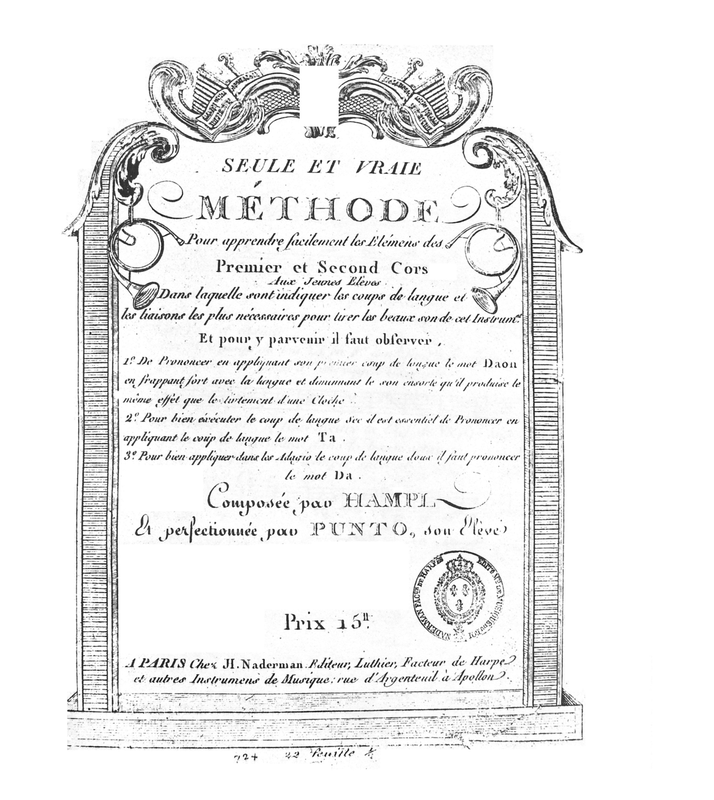 SEULE ET VRAIE
MÉTHODE
Pour apprendre facilement les Elémens des
Premier et Second Cors
Aux Jeunes Elèves
Dans laquelle sont indiquer les coups de langue et
les liaisons les plus nécessaires pour tirer les beaux son de cet Instrumt.
Et pour y parvenir il faut observer,
1º. De Prononcer en appliquant son premier coup de langue le mot Daon
en frappant fort avec la langue et diminuant le son ensorte qu'il produise le
même effet que le tintement d'une Cloche.
2º. Pour bien éxécuter le coup de langue Sec il est essentiel de Prononcer en
appliquant le coup de langue le mot Ta.
3º. Pour bien appliquer dans les Adagio le coup de langue doux il faut prononcer
le mot Da.
Composée par HAMPL
Et perfectionnée par PUNTO, son Elève
Prix 15tt.
A PARIS Chez JH. Naderman. Editeur, Luthier, Facteur de Harpe
et autres Instrumens de Musique: rue d'Argenteuil à Apollon.
724 22 feuille